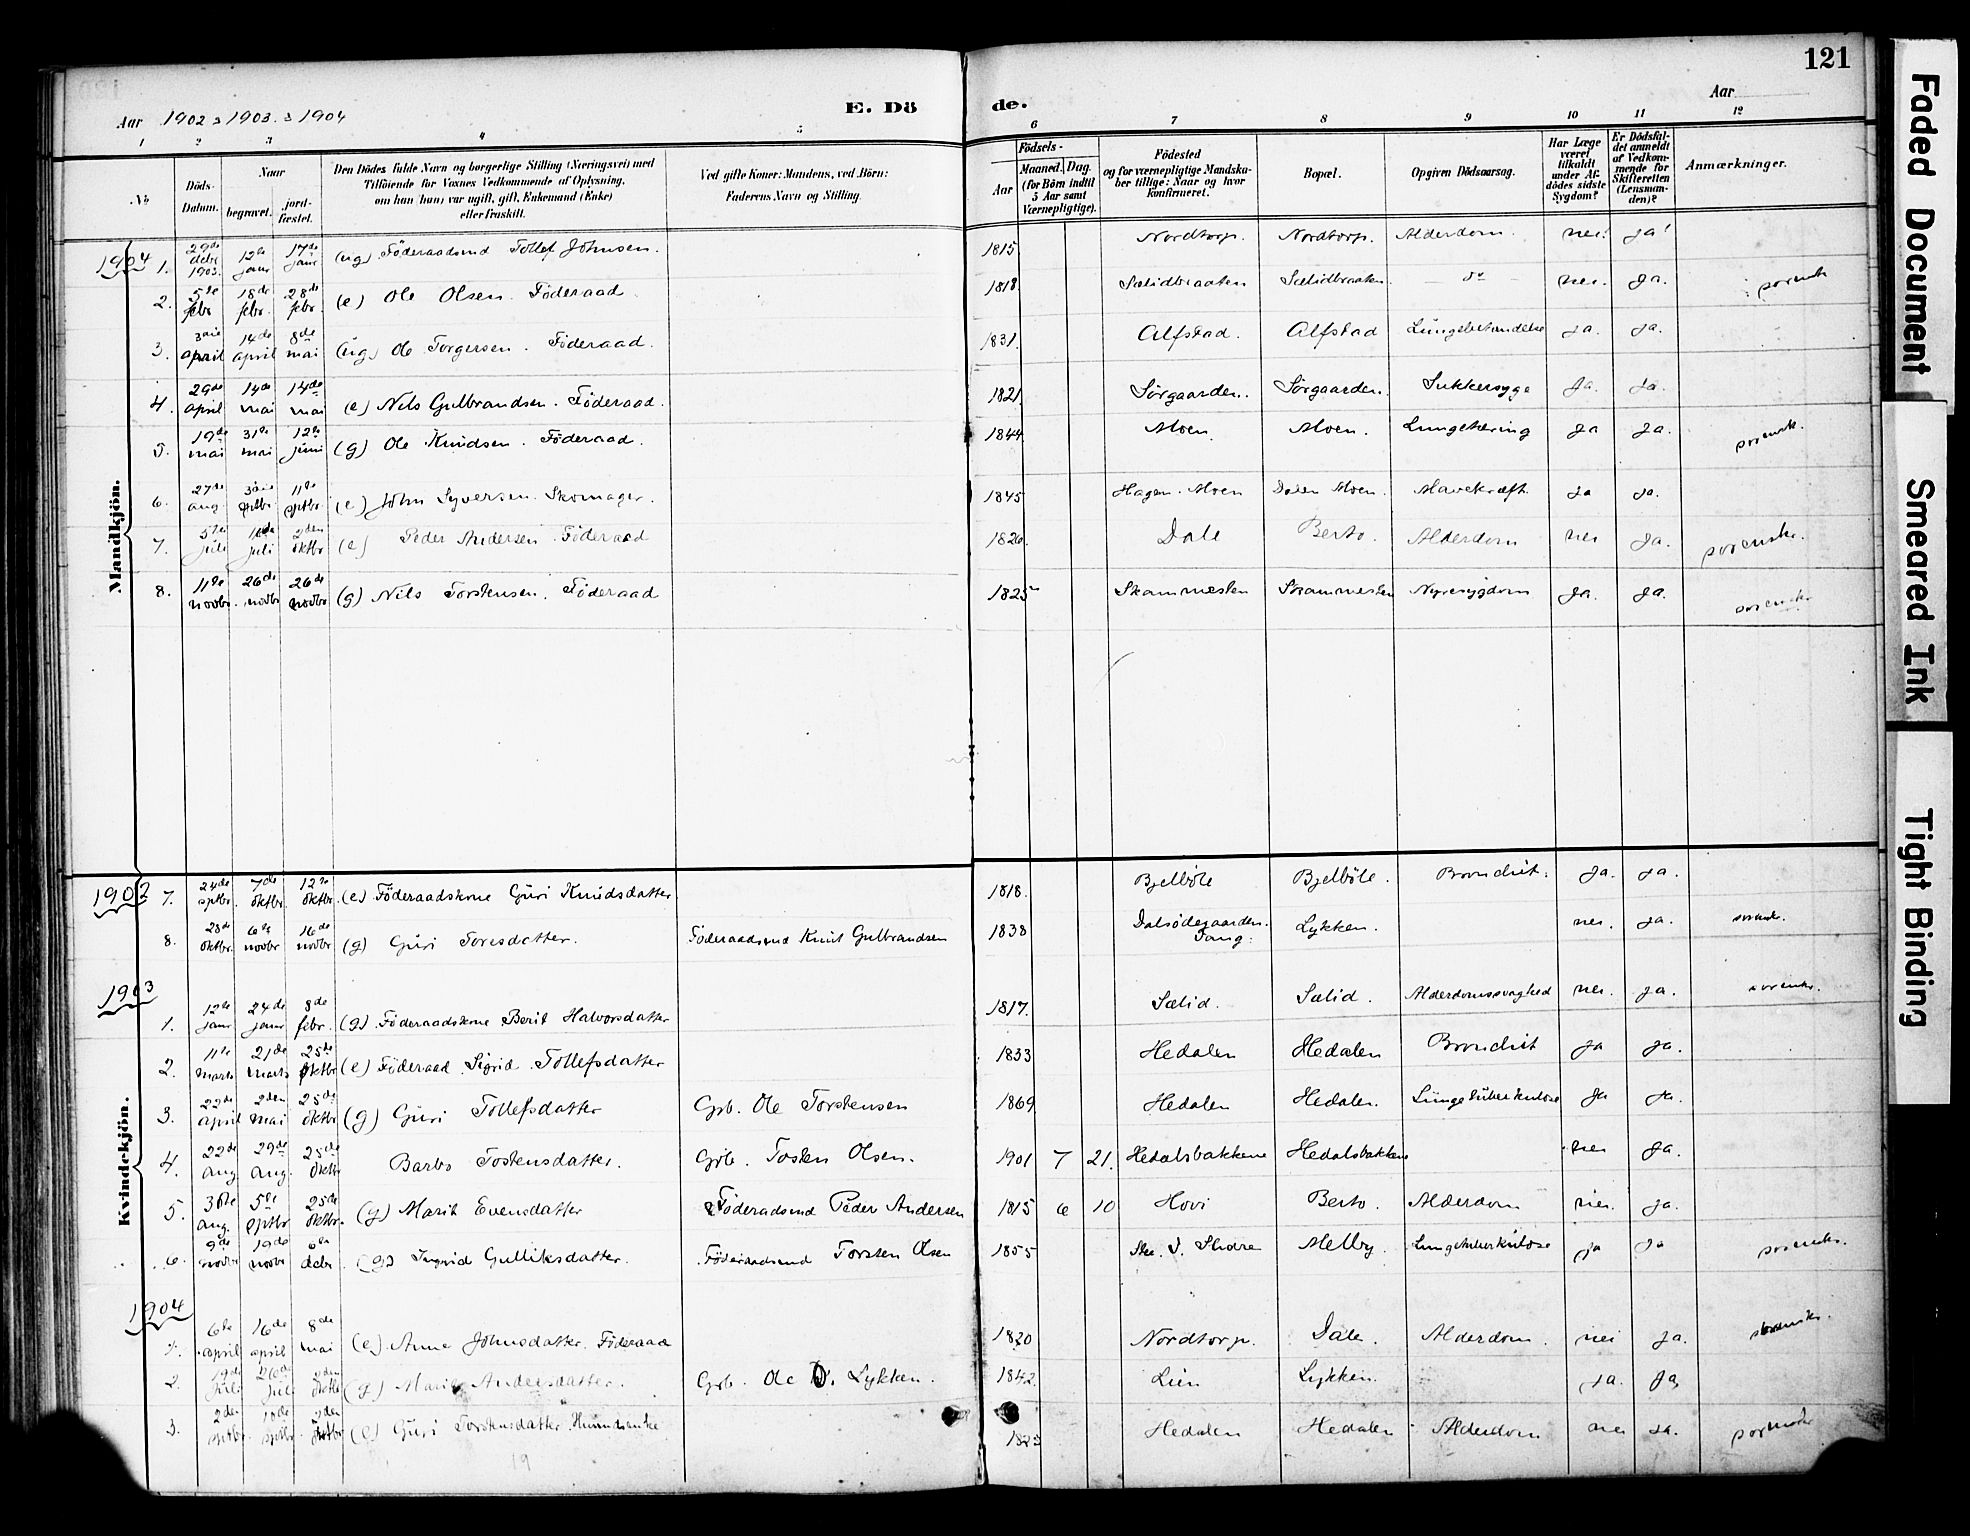 121
Aar 1902 & 1903 & 1904
E. Dö
de.
Aar
1 2 3 4 5 6 7 8 9 10 11 12
No
Döds-Datum.
Naar
begravet.
jord-fæstet.
Den Dödes fulde Navn og borgerlige Stilling (Næringsvei) med
Tilföiende for Voxnes Vedkommende af Oplysning,
om han (hun) var ugift, gift, Enkemand (Enke)
eller fraskilt.
Ved gifte Koner: Mandens, ved Börn:
Faderens Navn og Stilling.
Födsels-
Aar
Maaned. Dag.
(for Börn indtil
5 Aar samt
Værnepligtige).
Födested
og for værnepligtige Mandska-
ber tillige: Naar og hvor
konfirmeret.
Bopæl.
Opgiven Dödsaarsag.
Har Læge
været
tilkaldt
under Af-
dödes sidste
Sygdom?
Er Dödsfal-
det anmeldt
af Vedkom-
mende for
Skifteretten
(Lensman-
den)?
Anmærkninger.
Mandkjön.
1904 1. 29de debr 1903. 12te janr 17de janr (ug) Föderaadsmd Tollef Johnsen. 1815. Nordtorp. Nordtorp. Alderdom. nei. ja!
2. 5te febr 18de febr. 28de febr. (e) Ole Olsen. Föderaad. 1818 Sælidbraaten Sælidbraaten. — do — nei. ja.
3. 3die april 14de april 8de mai (ug) Ole Torgersen. Föderaad. 1831. Alfstad. Alfstad Lungebetændelse ja. ja.
4. 29de april 14de mai 14de mai (e) Nils Gulbrandsen. Föderaad. 1821. Sörgaarden. Sörgaarden. Sukkersyge ja. ja.
5. 19de mai 31te mai 12te juni (g) Ole Knudsen. Föderaad. 1844 Moen. Moen. Lungetæring ja ja.
6. 27de aug. 3die sptbr 11te sptbr (e) John Syversen. Skomager. 1845 Hagen. Moen Moen. Mavekræft. ja ja.
7. 5te juli juli 2den oktbr (e) Peder Andersen Föderaad 1826. Dale Berto. Alderdom nei ja.
8. 11te novbr. 26de novbr 26de novbr (g) Nils Torstensen. Föderaad 1825 Skammesten Skammesten Nyresygdom ja. ja.
Kvindekjön.
1902 7. 24de sptbr. 7de oktbr. 12te oktbr. (e) Föderaadskone Guri Knudsdatter. 1818. Bjelböle Bjelböle. Bronchit. ja. ja.
8. 28de oktbr. 6te novbr 16de novbr (g) Guri Toresdatter. Föderaadsmd Knut Gulbrandsen 1838 Dalsödegaarden. Vang. Lykken. nei. ja.
1903
1. 12te janr 24de janr 8de febr. (g) Föderaadskone Berit Halvorsdatter 1817. Sælid. Sælid. Alderdomssvaghed nei. ja.
2. 11te marts 21de marts 25de oktbr (e) Föderaad. Sigrid Tollefsdatter 1833 Hedalen Hedalen Bronchit ja ja.
3. 22de april 2den mai 25de oktbr (g) Guri Tollefsdatter Grb. Ole Torstensen 1869 Hedalen Hedalen. Lungetuberkulose ja ja.
4. 22de aug 29de aug. 25de oktbr Barbo Tostensdatter. Grb. Tosten Olsen. 1901 7 21. Hedalsbakkene Hedalsbakkene nei ja.
5. 30te aug. 5te sptbr 25de oktbr. (g) Marit Evensdatter Föderadsmd Peder Andersen 1815 6 10 Hovi Berto. Alderdom nei. ja.
6. 9de novbr 19de novbr 6te debr (g) Ingrid Gulliksdatter. Föderaadsmd Torsten Olsen 1855 Slidre Melby. Lungetuberkulose ja ja
1904
1. 6te april 16de april 8de mai (e) Anne Johnsdatter. Föderaad 1820 Nordtorp. Dale. Alderdom. nei ja.
2. 19de juli juli 2den oktbr (g) Marit Andersdatter. Grb. Ole D. Lykken. 1842. Lien Lykken. ja. ja,
3. 2den sptbr sptbr. 2den oktbr (e) Guri Torstensdatter. 1823 Hedalen Hedalen Alderdom nei ja.
Faded Document
Smeared Ink
Tight Binding